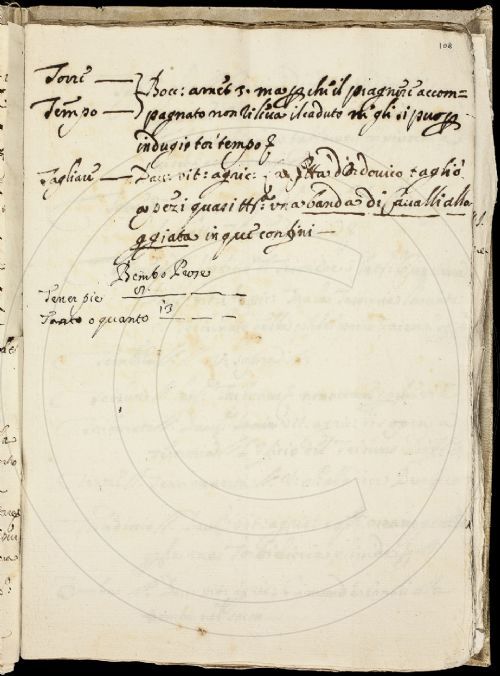 108
Torre — Bocc: amet 3. ma p che il piagnere accom=
Tempo — pagnato non li leva il caduto ne gli si puo p
indugio tor tempo
Tagliare — Tac: vit: agric: la d'Ordovico taglio
a pezi quasi una banda di cavalli allo
ggiata in que confini —
Bembo Prose
Tener pie 51.
Tanto o quanto 13